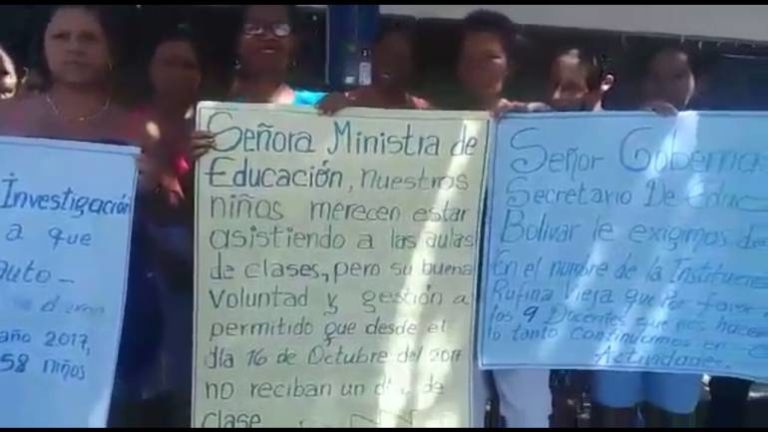 Investigación
a que
auto -
año 2017,
58 niños
Señora Ministra de
Educación, nuestros
niños merecen estar
asistiendo a las aulas
de clases, pero su buena
voluntad y gestión a
permitido que desde el
día 16 de Octubre del 2017
no reciban un de
clase
Señor Goberna
Secretario De Educ
Bolivar le exigimos
En el nombre de la
Rufina Vieja que por favor
los 9 Docentes que nos hacen
lo tanto continuamos en
Actividades.